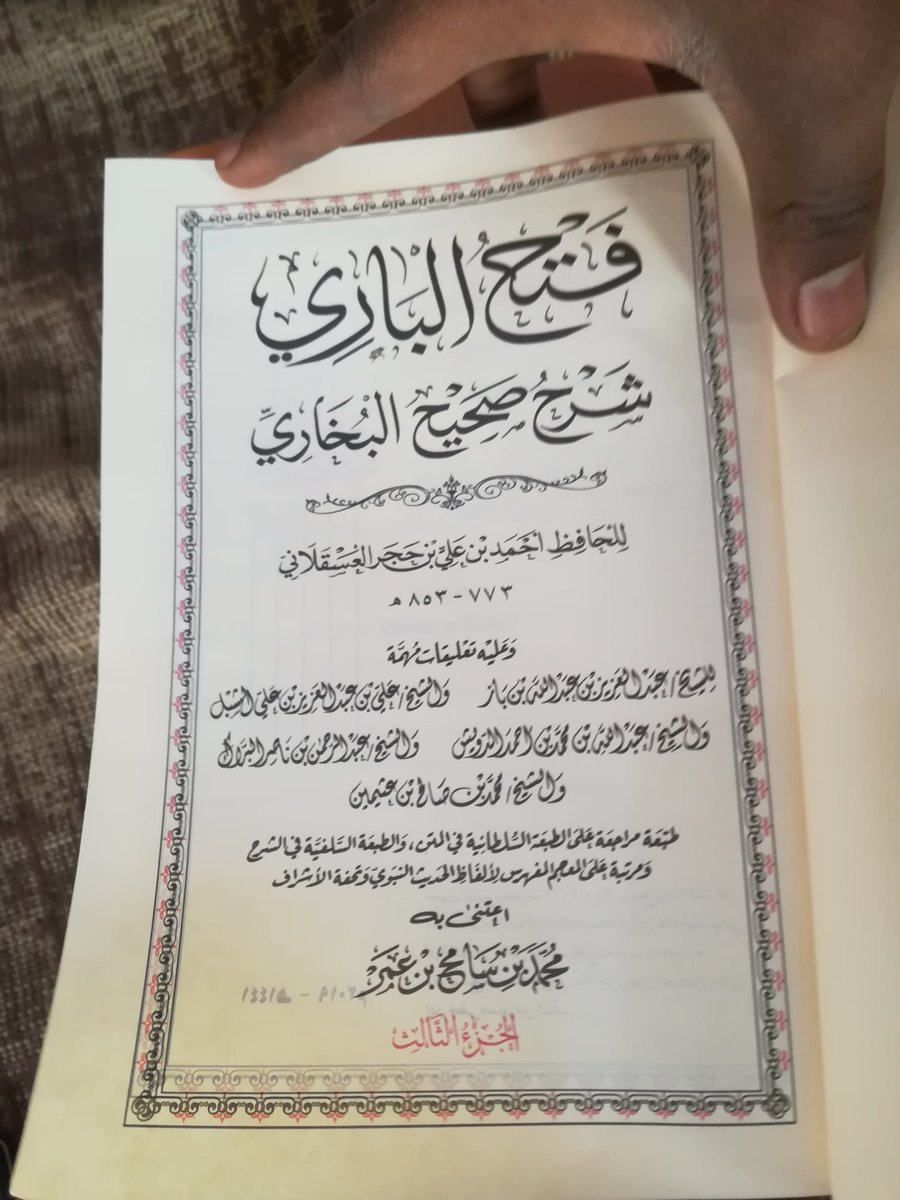 فَتْحُ البَارِي
شَرْحُ صَحِيْحِ البُخَارِيِّ
لِلْحَافِظِ أَحْمَدِ بْنِ عَلِيِّ بْنِ حَجَرِ العَسْقَلَانِي
٧٧٣ - ٨٥٣ هـ
وَعَلَيْهِ تَعْلِيْقَات مُهِمَّة
لِلشَّيْخ/ عَبْدِ العَزِيزِ بْنِ عَبْدِ اللهِ بْنِ بَاز وَالشَّيْخ/ عَلِيّ بْنِ عَبْدِ العَزِيزِ بْنِ عَلِيّ الشِّبْل
وَالشَّيْخ/ عَبْدِ اللهِ بْنِ مُحَمَّدِ بْنِ أحمد الدَّوِيش وَالشَّيْخ/ عَبْدِ الرَّحْمٰنِ بْنِ نَاصِرِ البَرَّاك
وَالشَّيْخ/ مُحَمَّدِ بْنِ صَالِحِ بْنِ عثيمين
طَبْعَة مراجعَة عَلَى الطَّبْعَةِ السُّلْطَانِيَّة فِي المَتْن، وَالطَّبْعَة السَّلَفِيَّة فِي الشَّرْح
وَمرتبة عَلَى المعجم المفهرس لِأَلْفَاظِ الحَدِيث النَّبَوِيّ وَتحفة الأشراف
اعتنى به
مُحَمَّدُ بْنُ سَامِحِ بْنِ عُمَر
الجُزْءُ الثَّالِث